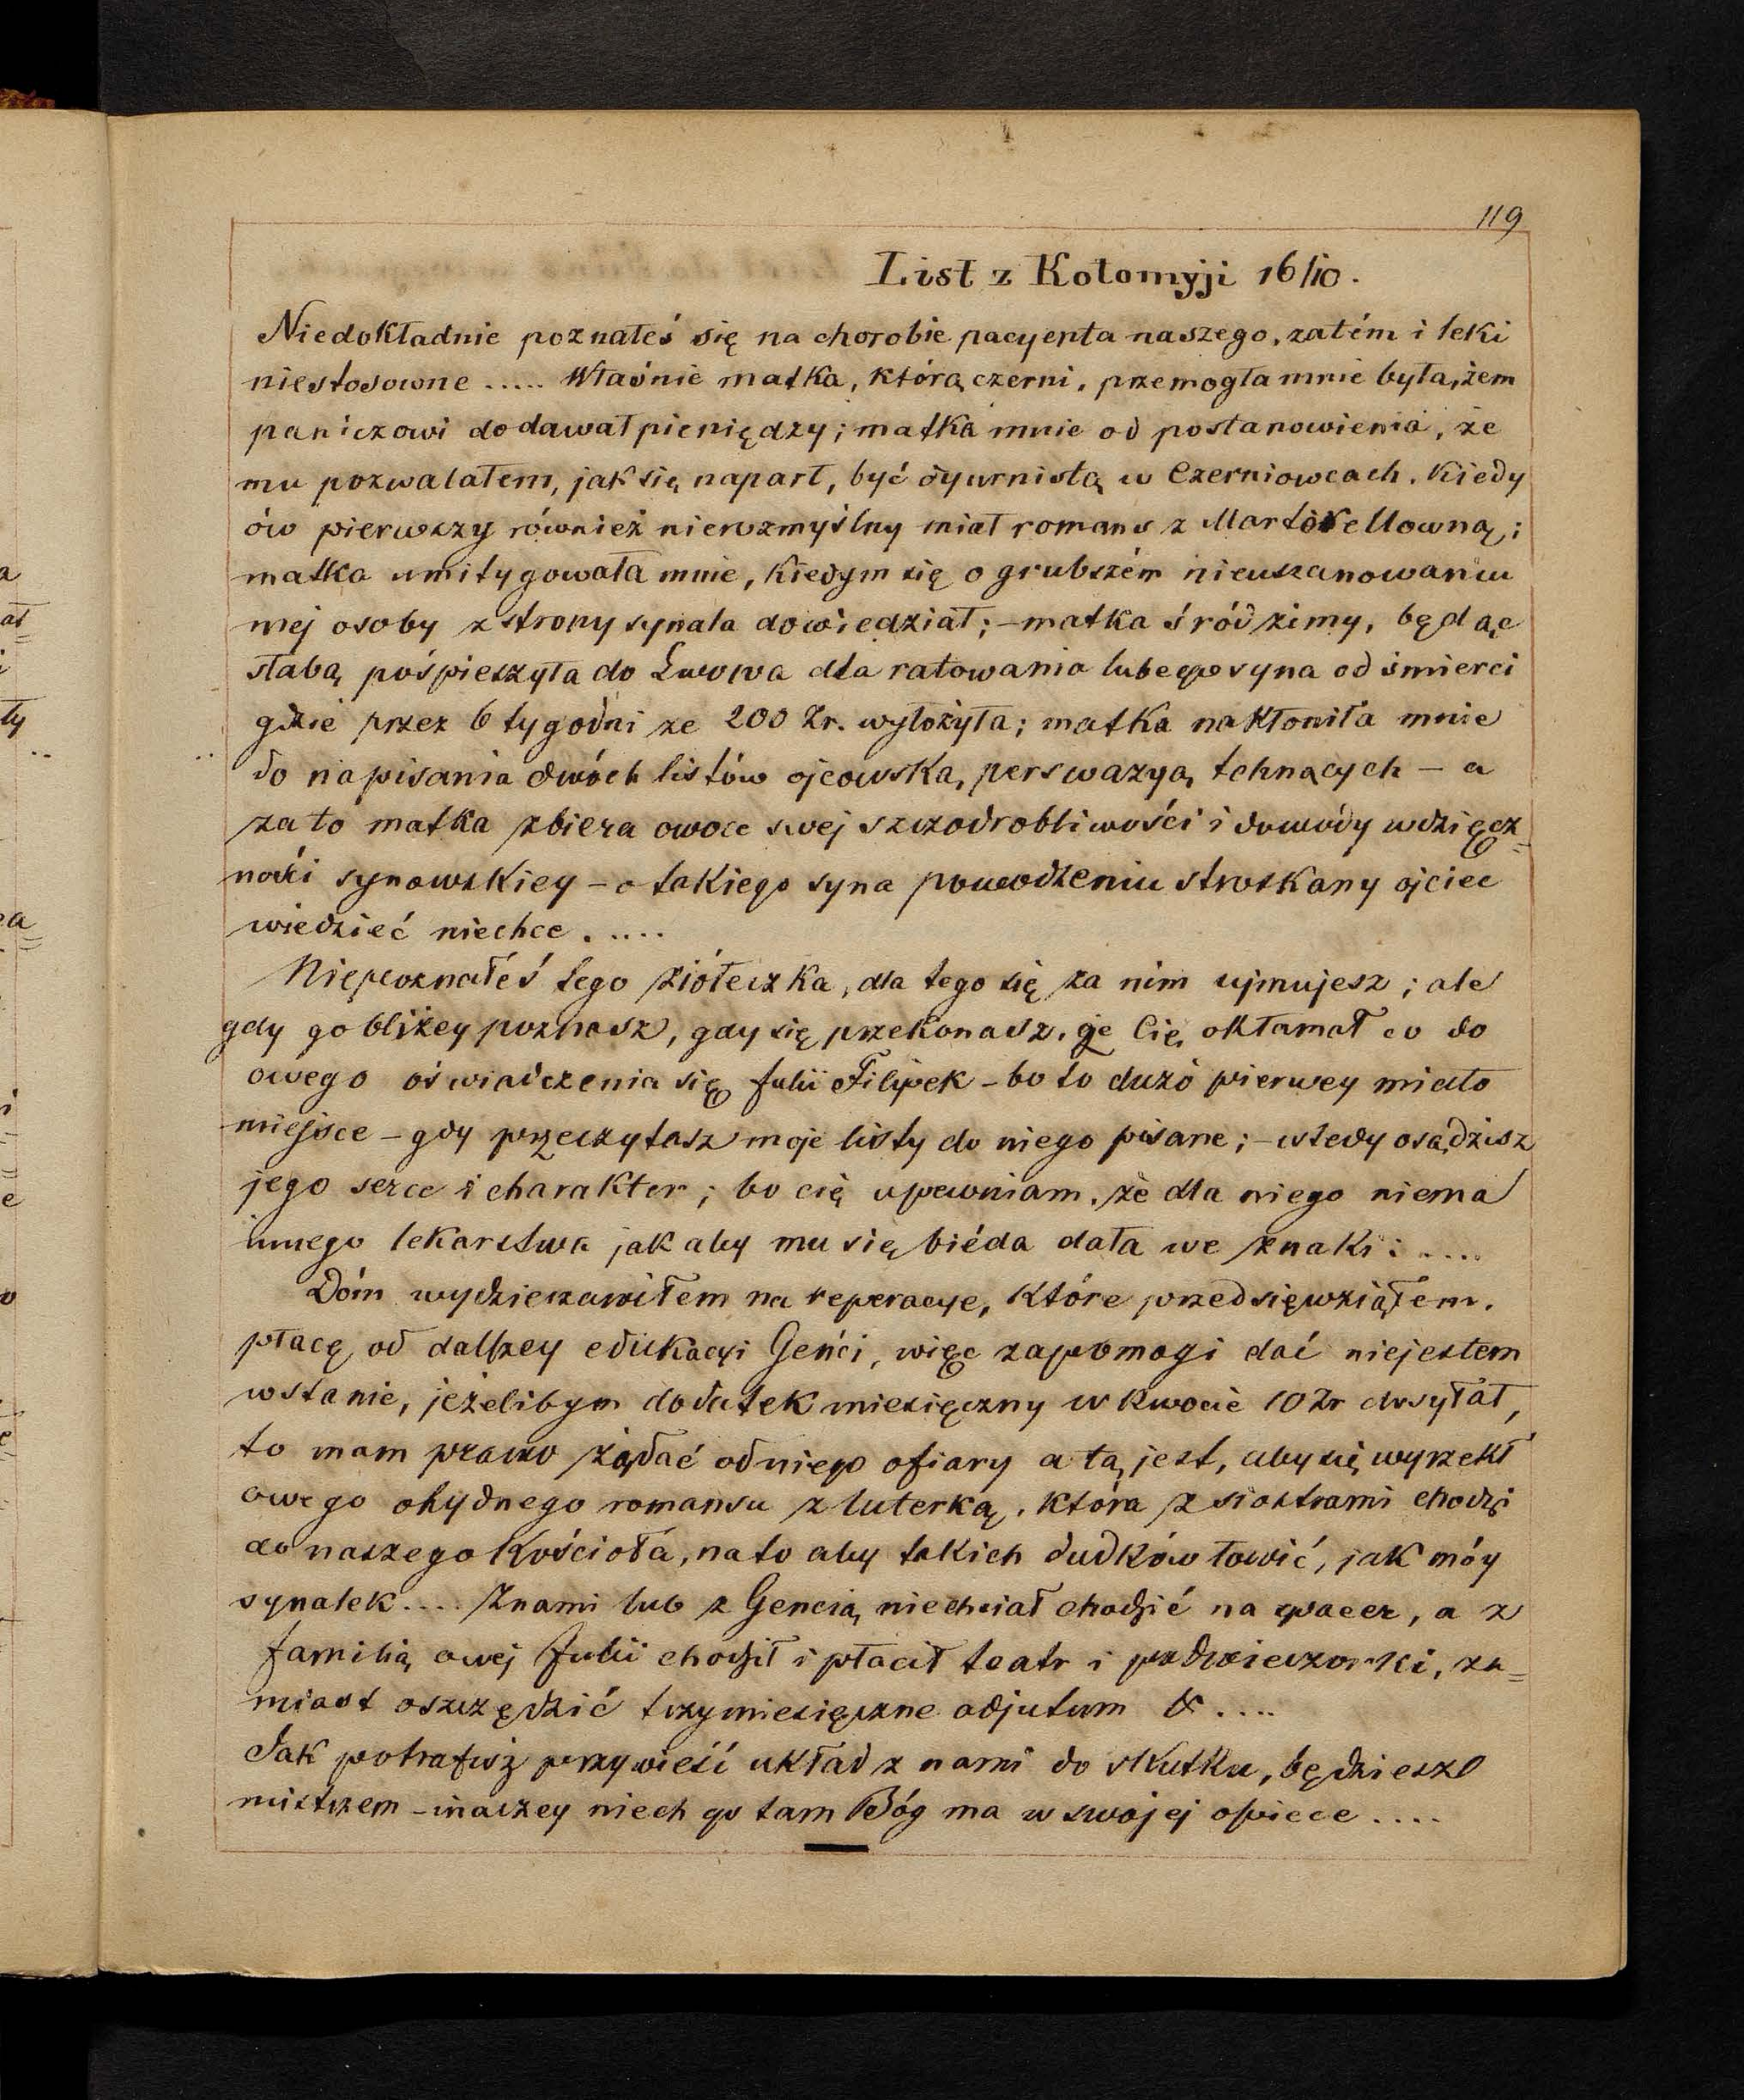 119
List z Kołomyji 16/10.
Niedokładnie poznałeś się na chorobie pacyenta naszego, zatém i leki
niestosowne ..... Właśnie matka, którą czerni, przemogła mnie była, żem
paniczowi dodawał pieniędzy; matka mnie od postanowienia, że
mu pozwalałem, jak się naparł, być dyurnistą w Czerniowcach. Kiedy
ów pierwszy również niewzmyślny miał romans z Martinellowną;
matka umitygowała mnie, kiedym się o grubszém nieuszanowaniu
mej osoby z strony synala dowiedział; – matka śród zimy, będąc
słabą, pośpieszyła do Lwowa dla ratowania lubego syna od śmierci
gdzie przez 6 tygodni ze 200 Zr. wyłożyła; matka nakłoniła mnie
do napisania dwóch listów ojcowską perswazyą tchnących – a
za to matka zbiera owoce swej szczodrobliwości i dowody wdzięcz=
ności synowskiey – o takiego syna powodzeniu stroskany ojciec
wiedzieć niechce .....
Niepoznałeś tego ziółeczka, dla tego się za nim ujmujesz; ale
gdy go bliżey poznasz, gdy się przekonasz, że Cię okłamał co do
owego oświadczenia się Julii Filipek – bo to dużo pierwey miało
miejsce – gdy przeczytasz moje listy do niego pisane; – wtedy osądzisz
jego serce i charakter; bo cię upewniam, że dla niego niema
innego lekarstwa jak aby mu się biéda dała we znaki: ....
Dóm wydzierzawiłem na reperacye, które przedsięwziąłem.
płacę od dalszey edukacyi Genci, więc zapomogi dać niejestem
wstanie, jeżelibym dodatek miesięczny w kwocie 10 Zr dosyłał,
to mam prawo żądać od niego ofiary a tą jest, aby się wyrzekł
owego ohydnego romansu z luterką, która z siostrami chodzi
do naszego Kościoła, na to aby takich dudków łowić, jak móy
synalek .... Z nami lub z Gencią niechciał chodzić na spacer, a z
familią owej Julii chodził i płacił teatr i podwieczorki, za=
miast oszczędzić trzymiesięczne adjutum & ....
Jak potrafisz przywieść układ z nami do skutku, będziesz
mistrzem – inaczey niech go tam Bóg ma w swojej opiece ....